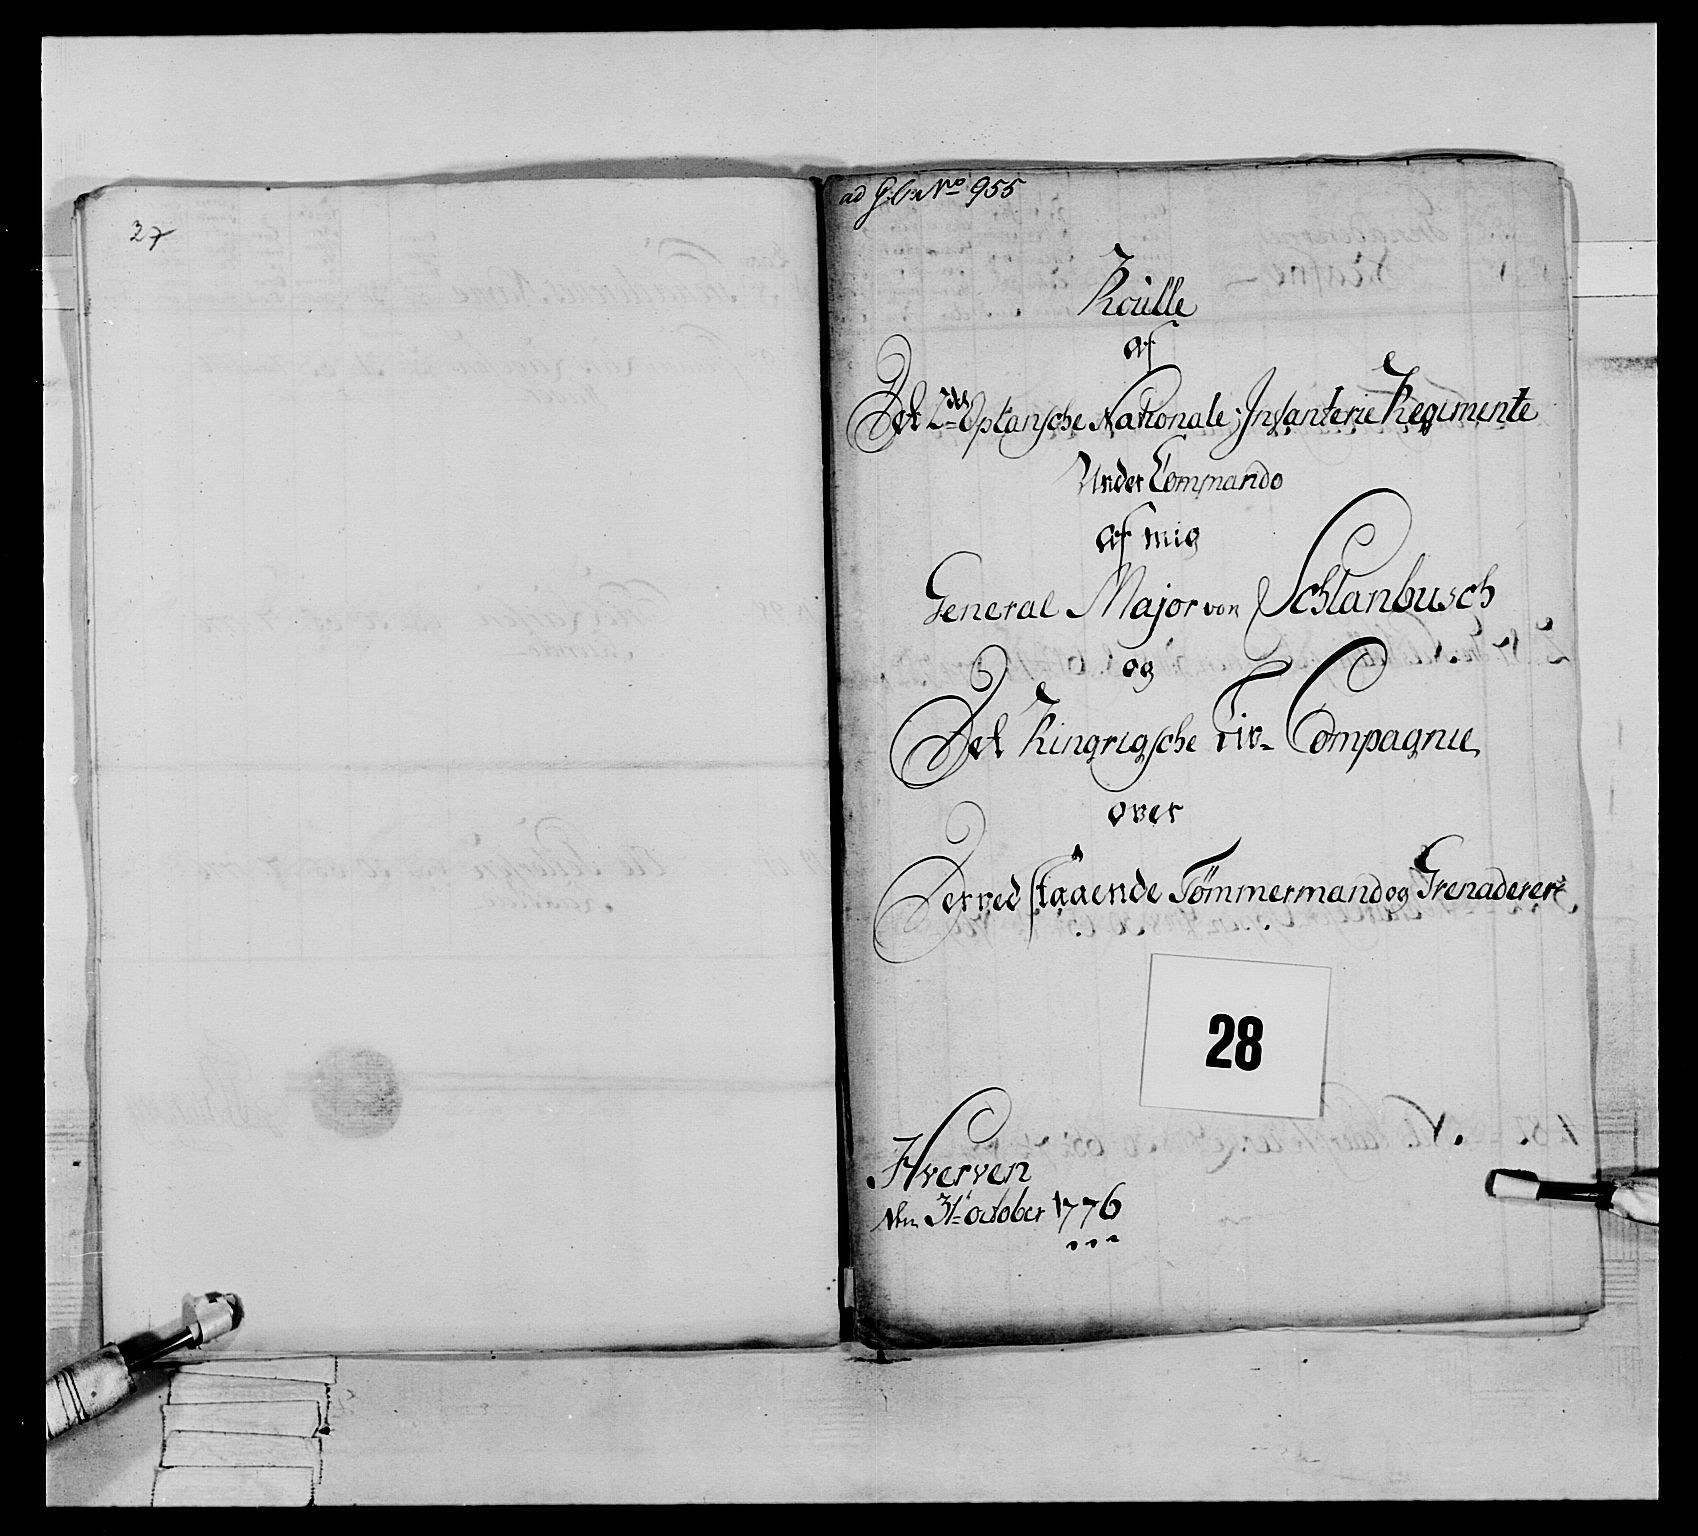 27
ad G:C: No 955
Roulle
af
Det 2det Oplansche Nationale Infanterie Regimente
Under Commando
af mig
General Major von Schlanbusch
og
Det Ringrigsche Liv-Compagnie
over
Derved staaende Tömmermand og Grenaderer
28
Hverven
den 31t October 1776